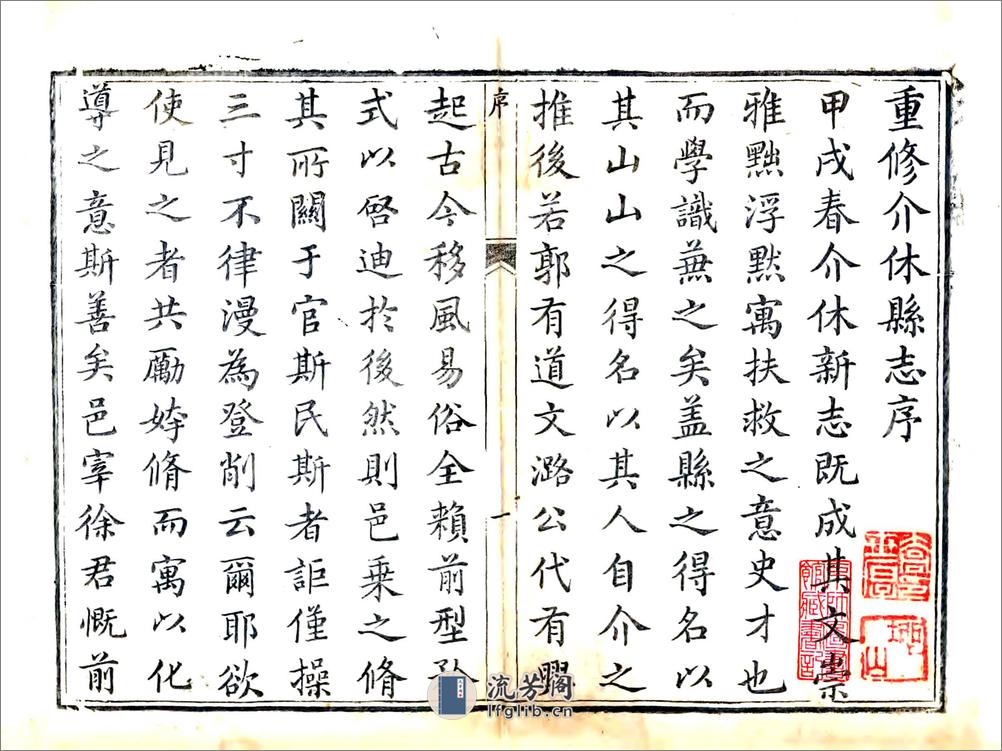 重修介休縣志序
甲戌春介休新志既成其文崇
雅黜浮默寓扶救之意史才也
而學識蕪之矣盖縣之得名以
其山山之得名以其人自介之
推後若郭有道文潞公代有
序
一
起古今移風易俗全賴前型
式以啓迪於後然則邑乗之脩
其所關于官斯民斯者詎僅操
三寸不律漫為登削云爾耶欲
使見之者共勵姱脩而寓以化
導之意斯善矣邑宰徐君慨前
流芳閣
lfglib.cn